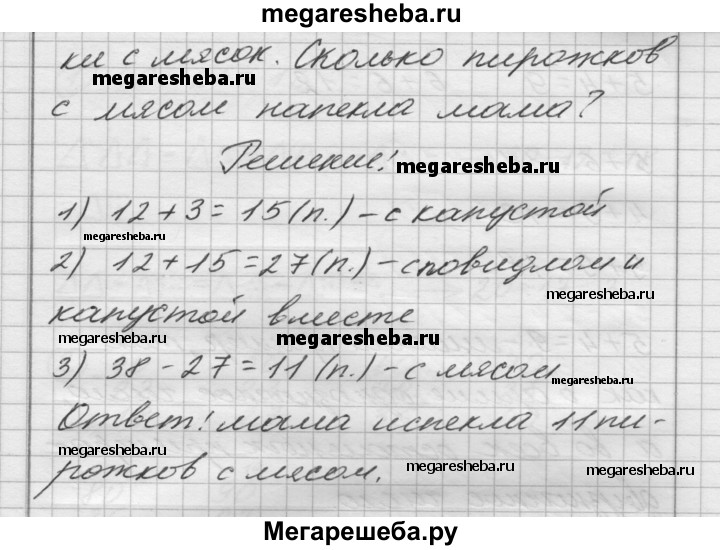 megaresheba.ru
ки с мясок. Сколько пирожков
megaresheba.ru
с мясом напекла мама?
Решение:
megaresheba.ru
1) 12 + 3 = 15 (п.) - с капустой
megaresheba.ru
2) 12 + 15 = 27 (п.) - с повидлом и
megaresheba.ru
капустой вместе
megaresheba.ru
megaresheba.ru
3) 38 - 27 = 11 (п.) - с мясом
megaresheba.ru
Ответ: мама испекла 11 пи-
megaresheba.ru
рожков с мясом.
megaresheba.ru
megaresheba.ru
Мегарешеба.ру